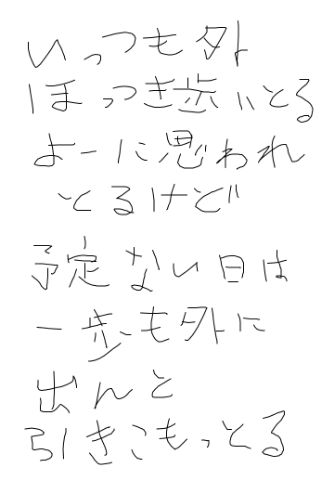 いっつも外
ほっつき歩いとる
よーに思われ
とるけど
予定ない日は
一歩も外に
出んと
引きこもっとる